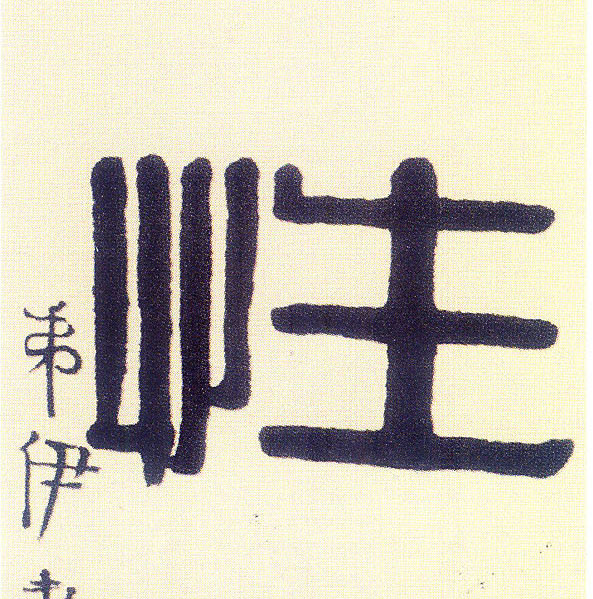 性
弟伊